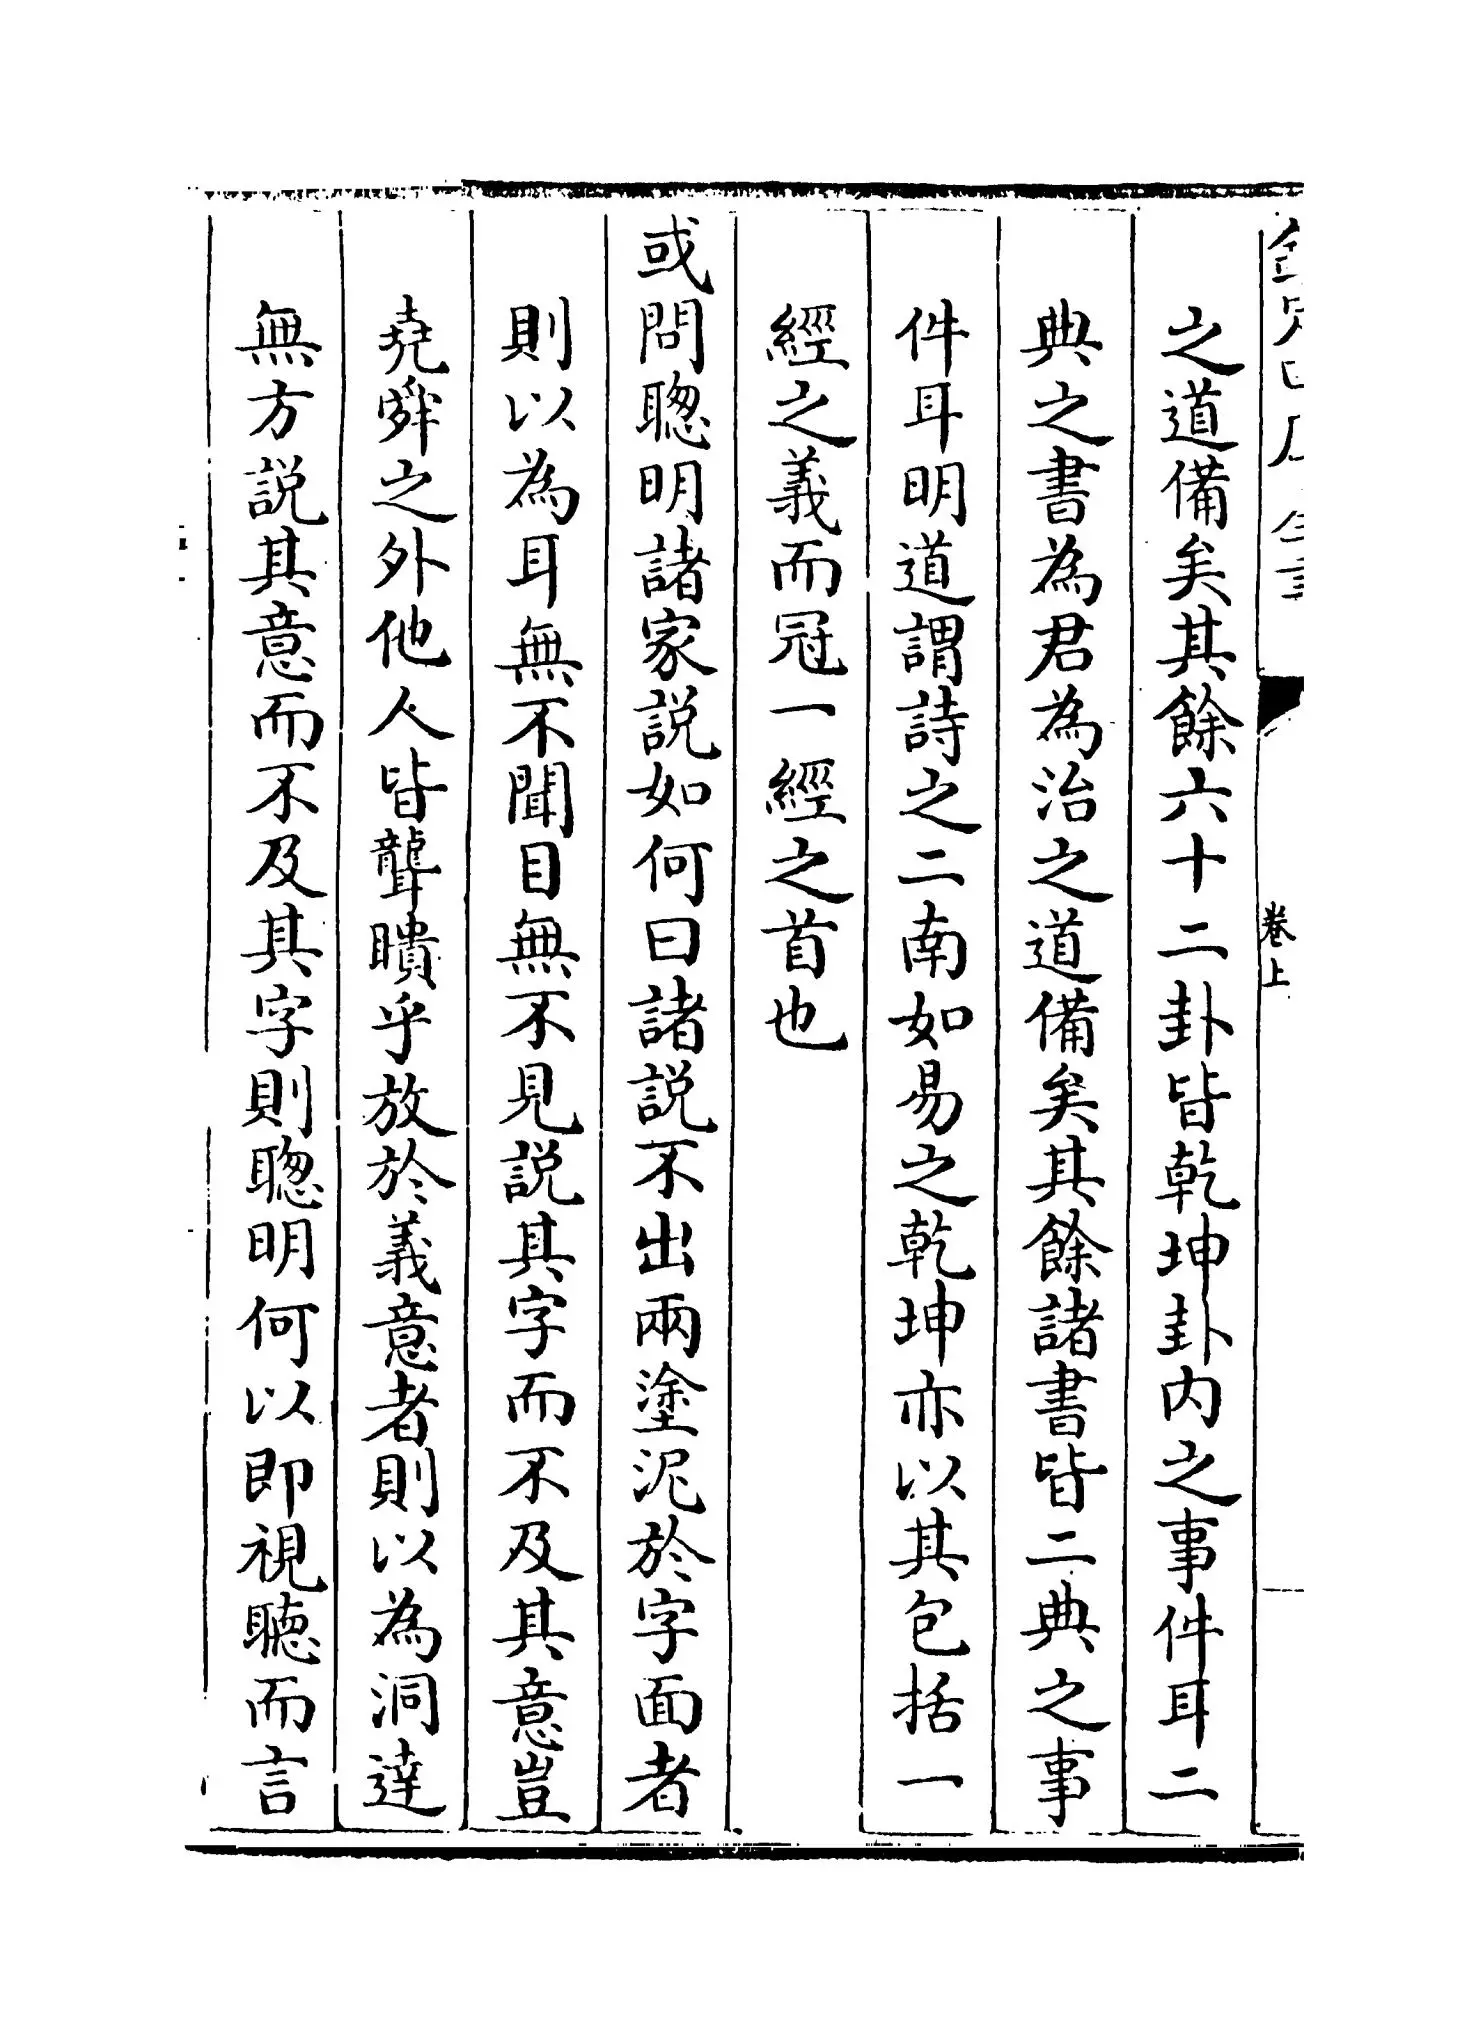 之道備矣其餘六十二卦皆乾坤卦内之事件耳二
典之書為君為治之道備矣其餘諸書皆二典之事
件耳明道謂詩之二南如易之乾坤亦以其包括一
經之義而冠一經之首也
或問聰明諸家説如何曰諸説不出兩塗泥於字面者
則以為耳無不聞目無不見説其字而不及其意豈
堯舜之外他人皆聾瞶乎放於義意者則以為洞達
無方説其意而不及其字則聰明何以即視聽而言
卷上